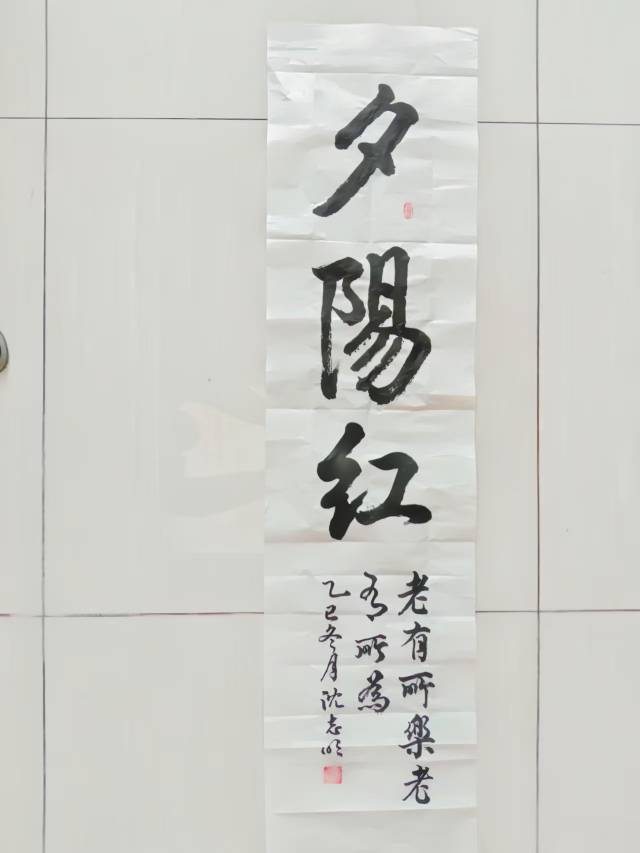 夕陽红
老有所樂老
有所為
乙巳冬月沈志明